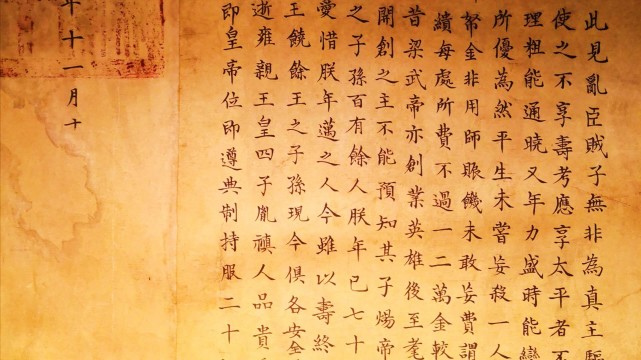 此見亂臣賊子無非為真主驅
使之不享壽考應享太平者不
理粗能通曉又年力盛時能彎
所優為然平生未嘗妄殺一人
帑金非用師賑饑未敢妄費謂
繢每處所費不過一二萬金較
昔梁武帝亦創業英雄後至耄
開創之主不能預知其子煬帝
之子孫百有餘人朕年已七十
愛惜朕年邁之人今雖以壽終
王饒餘王之子孫現今俱各安全
逝雍親王皇四子胤禛人品貴
即皇帝位即遵典制持服二十
年十一月十